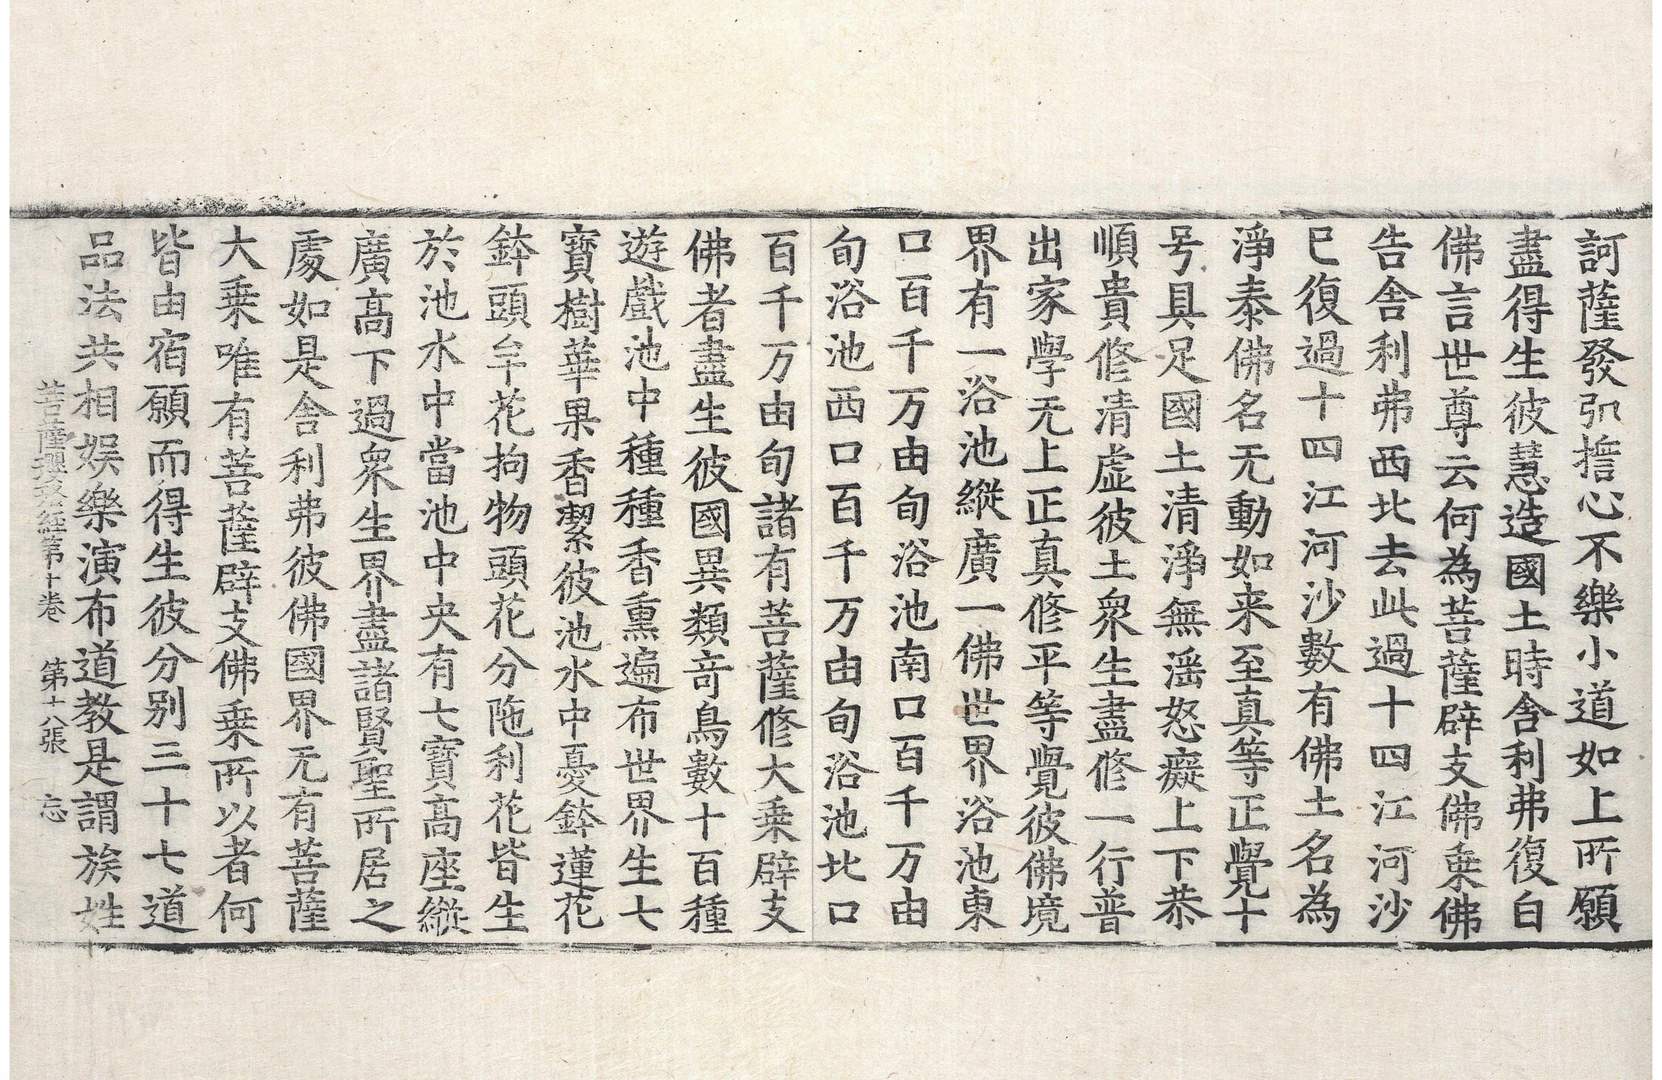 訶薩發弘擔心不樂小道如上所願
盡得生彼慧造國土時舍利弗復白
佛言世尊云何為菩薩辟支佛乗佛
告舍利弗西北去此過十四江河沙
已復過十四江河沙數有佛土名為
淨泰佛名无動如来至真等正覺十
号具足國土清淨無滛怒癡上下恭
順貴修清虛彼土衆生盡修一行普
出家學无上正真修平等覺彼佛境
界有一浴池縱廣一佛世界浴池東
口百千万由旬浴池南口百千万由
旬浴池西口百千万由旬浴池北口
百千万由旬諸有菩薩修大乗辟支
佛者盡生彼國異類竒鳥數十百種
遊戲池中種種香熏遍布世界生七
寶樹華果香潔彼池水中憂鉢蓮花
鉢頭牟花拘物頭花分陁利花皆生
於池水中當池中央有七寶髙座縱
廣髙下過衆生界盡諸賢聖所居之
處如是舍利弗彼佛國界无有菩薩
大乗唯有菩薩辟支佛乗所以者何
皆由宿願而得生彼分別三十七道
品法共相娱樂演布道教是謂族姓
菩薩瓔珞經第十卷 第十八張 忘